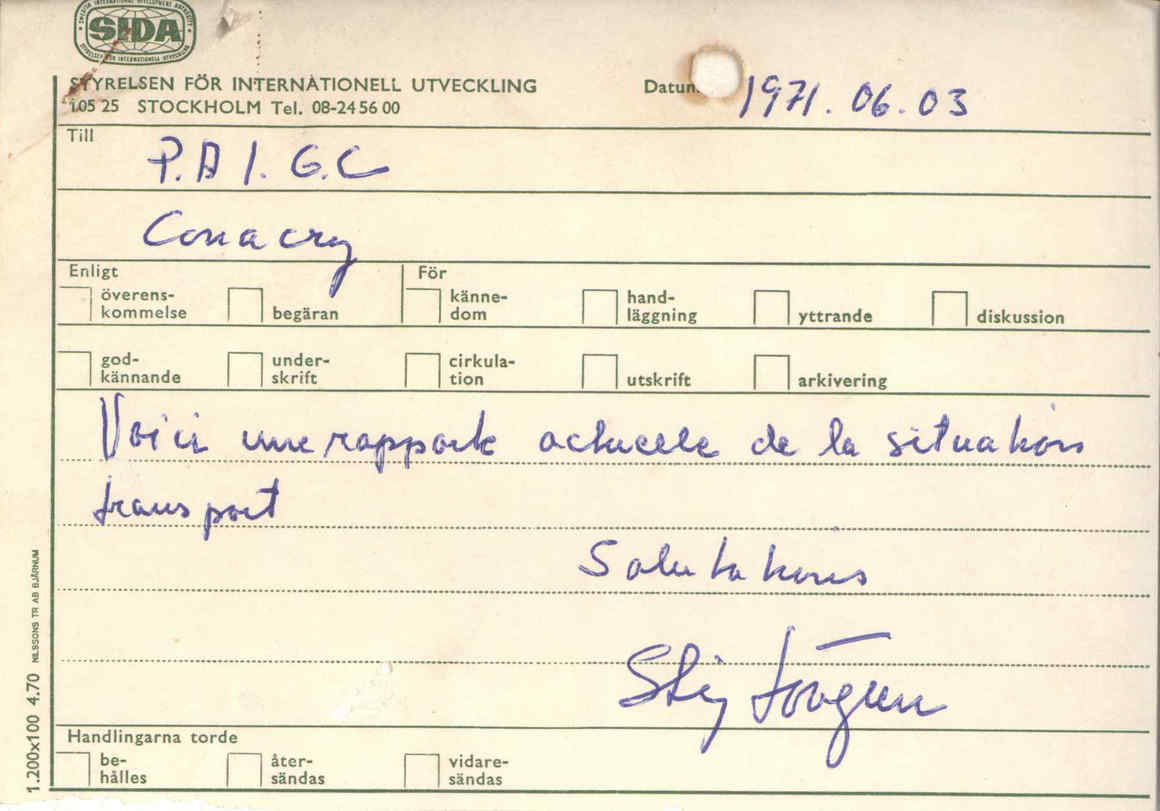 SWEDISH INTERNATIONAL DEVELOPMENT AUTHORITY
SIDA
STYRELSEN FÖR INTERNATIONELL UTVECKLING
STYRELSEN FÖR INTERNATIONELL UTVECKLING Datum 1971.06.03
105 25 STOCKHOLM Tel. 08-24 56 00
Till
P.A I. G.C
Conacry
Enligt För
överens-kommelse begäran känne-dom hand-läggning yttrande diskussion
god-kännande under-skrift cirkula-tion utskrift arkivering
Voici une rapporte actuelle de la situation
transport
Salutations
Stig Lövgren
Handlingarna torde
be-hålles åter-sändas vidare-sändas
1.200x100 4.70 NILSSONS TR AB BJÄRNUM